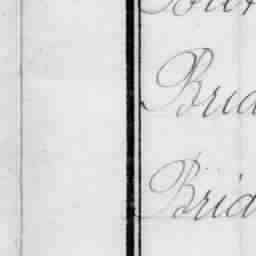 Brid
Brid